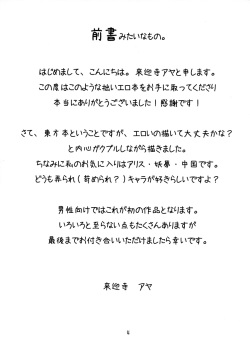 前書みたいなもの。
はじめまして、こんにちは。来迎寺アヤと申します。
この度はこのような拙いエロ本をお手に取ってくださり
本当にありがとうございました!感謝です!
さて、東方本ということですが、エロいの描いて大丈夫かな?
と内心ガクブルしながら描きました。
ちなみに私のお気に入りはアリス・妖夢・中国です。
どうも弄られ(苛められ?)キャラが好きらしいですよ?
男性向けではこれが初の作品となります。
いろいろと至らない点もたくさんありますが
最後までお付き合いいただけましたら幸いです。
来迎寺 アヤ